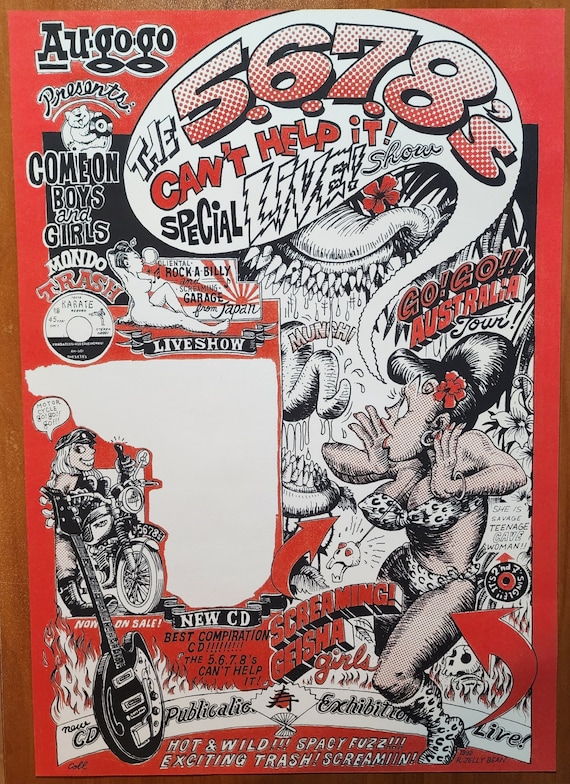 Au-go-go
Presents:
THE 5.6.7.8's
CAN'T HELP iT!
SPECiAL LIVE! Show
COME ON
BOYS
and
GIRLS
MONDO
TRASH
ORIENTAL
ROCK-A-BILLY
and
SCREAMING
GARAGE
from Japan
KARATE
45
LIVESHOW
GO! GO!!
AUSTRALIA
Tour!
MUNCH!
MOTOR
CYCLE
go!go!!
go!!!
5678's
SHE IS
SAVAGE
TEENAGE
CAVE
WOMAN!!
2nd
SINGLE
NOW ON SALE!
NEW CD
BEST COMPIRATION
CD!!!!!!!!!
"THE 5.6.7.8's
CAN'T HELP
IT!
SCREAMING!
GEISHA
girls
new
CD
Publicalic 寿 Exhibition
Live!
HOT & WILD!!! SPACY FUZZ!!!
EXCITING TRASH! SCREAMIIN!
R. JELLY BEAN